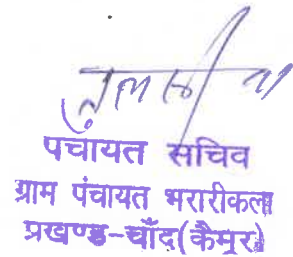 पंचायत सचिव
ग्राम पंचायत भरारीकला
प्रखण्ड-चाँद(कैमूर)